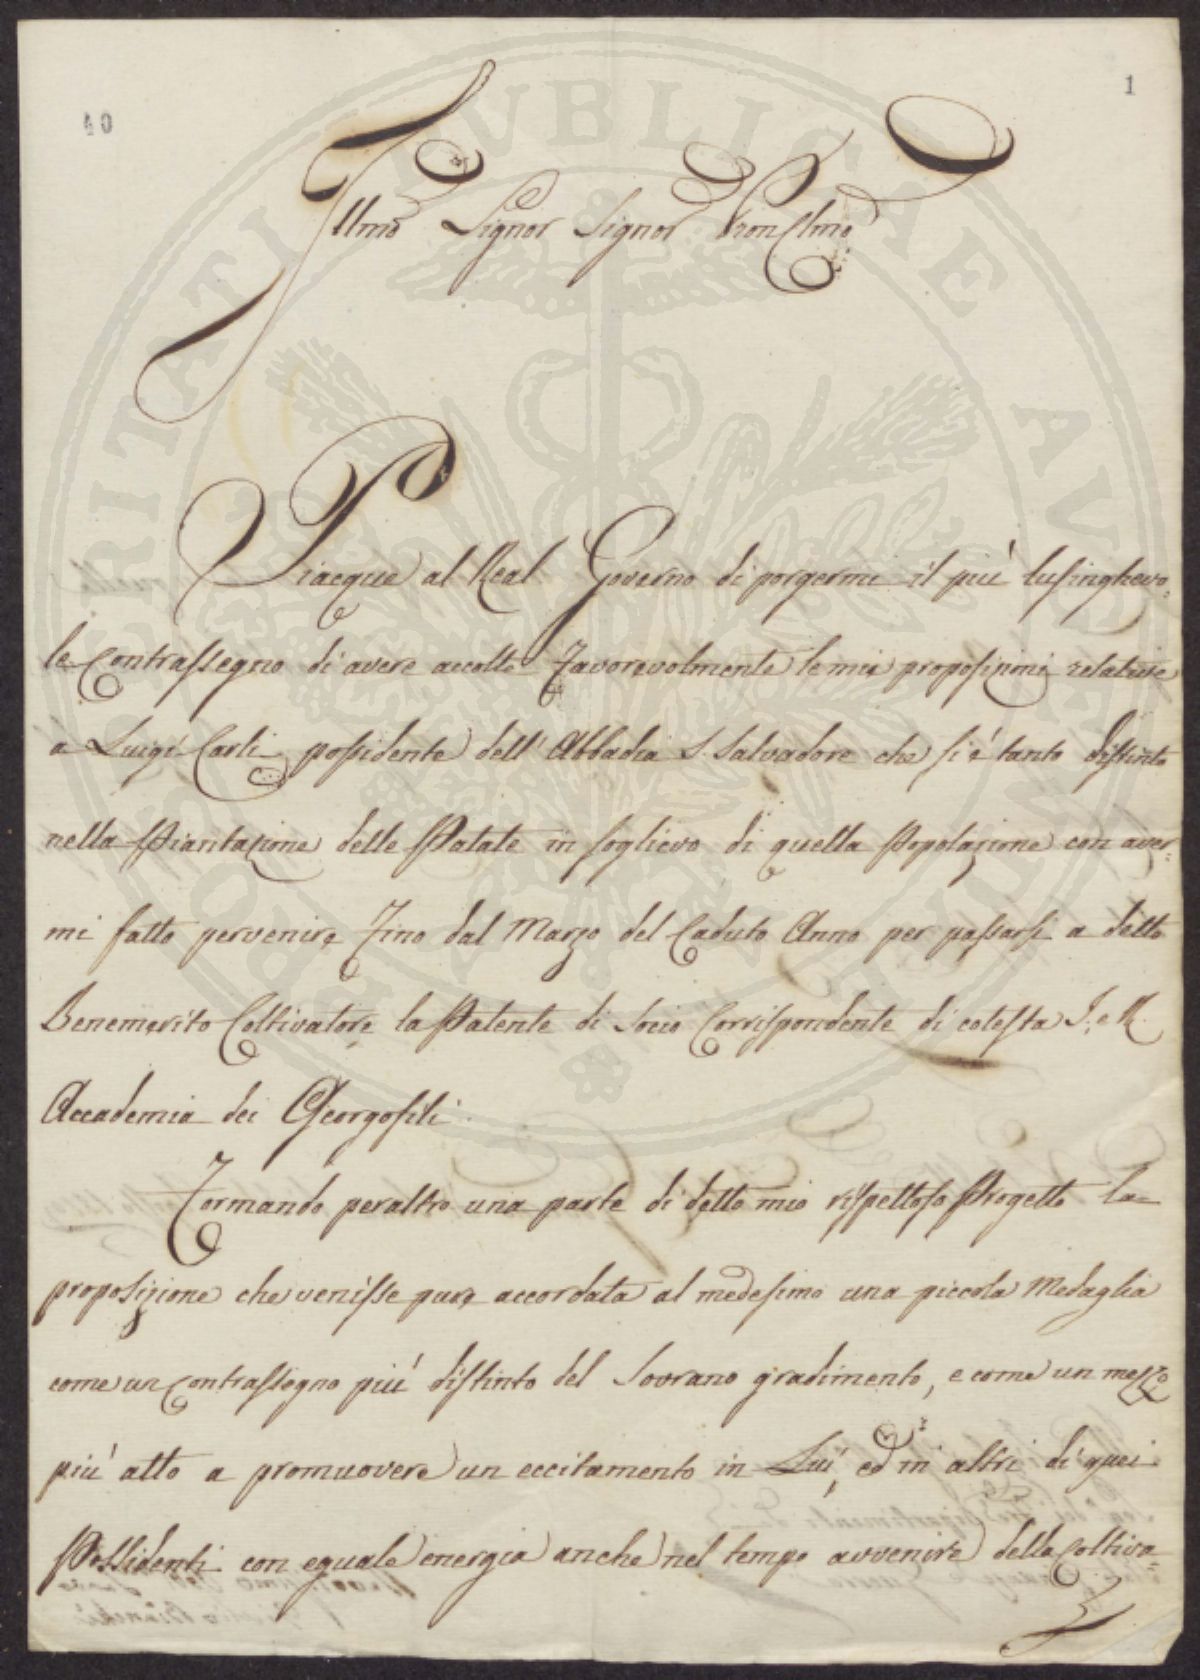 40
1
Illmo Signor Signor Pron Clmo
Piacque al Real Governo di porgermi il più lusinghevo-
le Contrassegno di avere accolte favorevolmente le mie proposizioni relative
a Luigi Carli possidente dell' Abbadia S. Salvadore che si è tanto distinto
nella Piantazione delle Patate in soglievo di quella Popolazione con aver-
mi fatto pervenire fino dal Marzo del Caduto Anno per passarsi a detto
Benemerito Coltivatore la Patente di Socio Corrispondente di cotesta I. e R.
Accademia dei Georgofili.
Formando peraltro una parte di detto mio rispettoso Progetto la
proposizione che venisse pure accordata al medesimo una piccola Medaglia
come un Contrassegno più distinto del Sovrano gradimento, e come un mezzo
più atto a promuovere un eccitamento in Lui, ed in altri di quei
Possidenti con eguale energia anche nel tempo avvenire della Coltiva-
PROSPERITATI PUBLICAE AUGENDAE